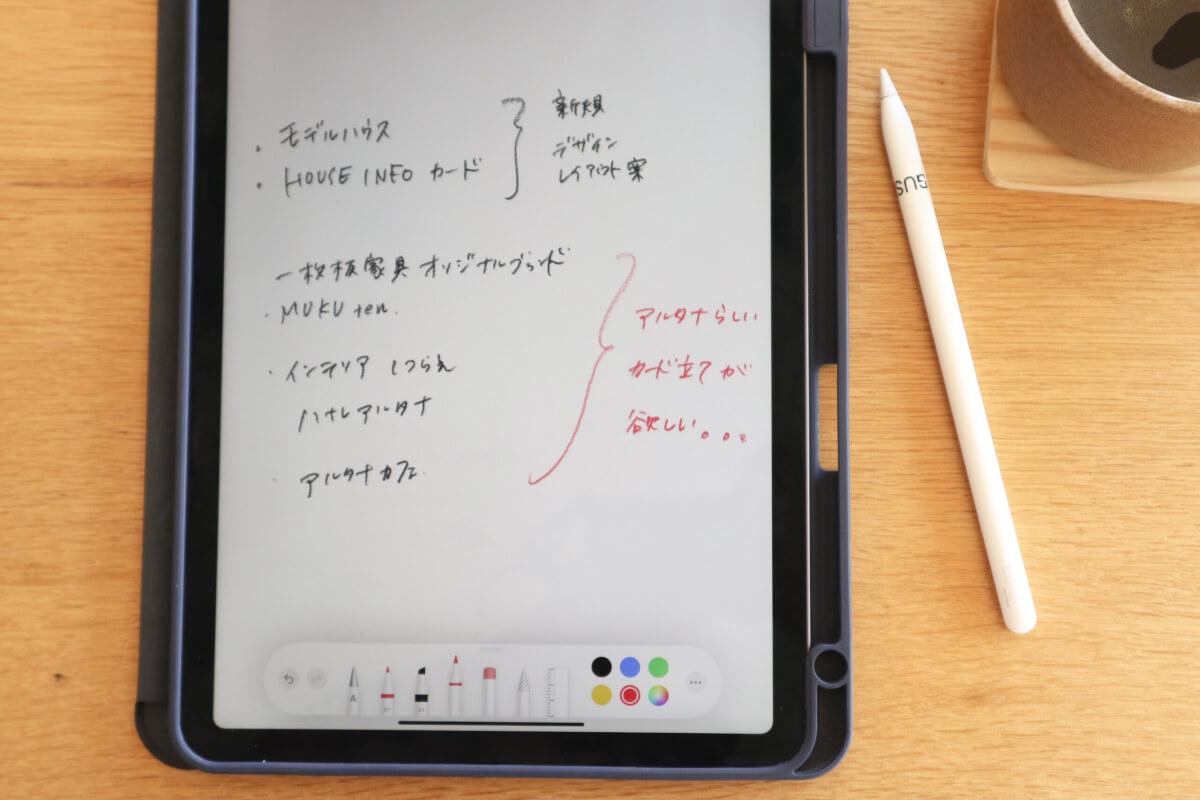 ・モデルハウス
・HOUSE INFO カード
新規
デザイン
レイアウト案
一枚板家具 オリジナルブランド
・MUKU ten.
・インテリア しつらえ
ハナレアルタナ
・アルタナカフェ.
アルタナらしい
カード立てが
欲しい。。。
A
SUG